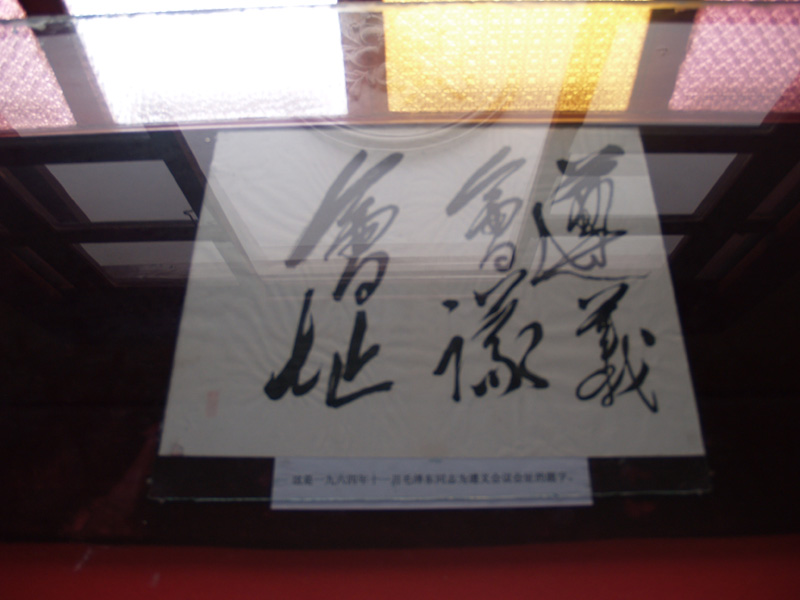 遵義
會議
會址
这是一九六四年十一月毛泽东同志为遵义会议会址的题字。